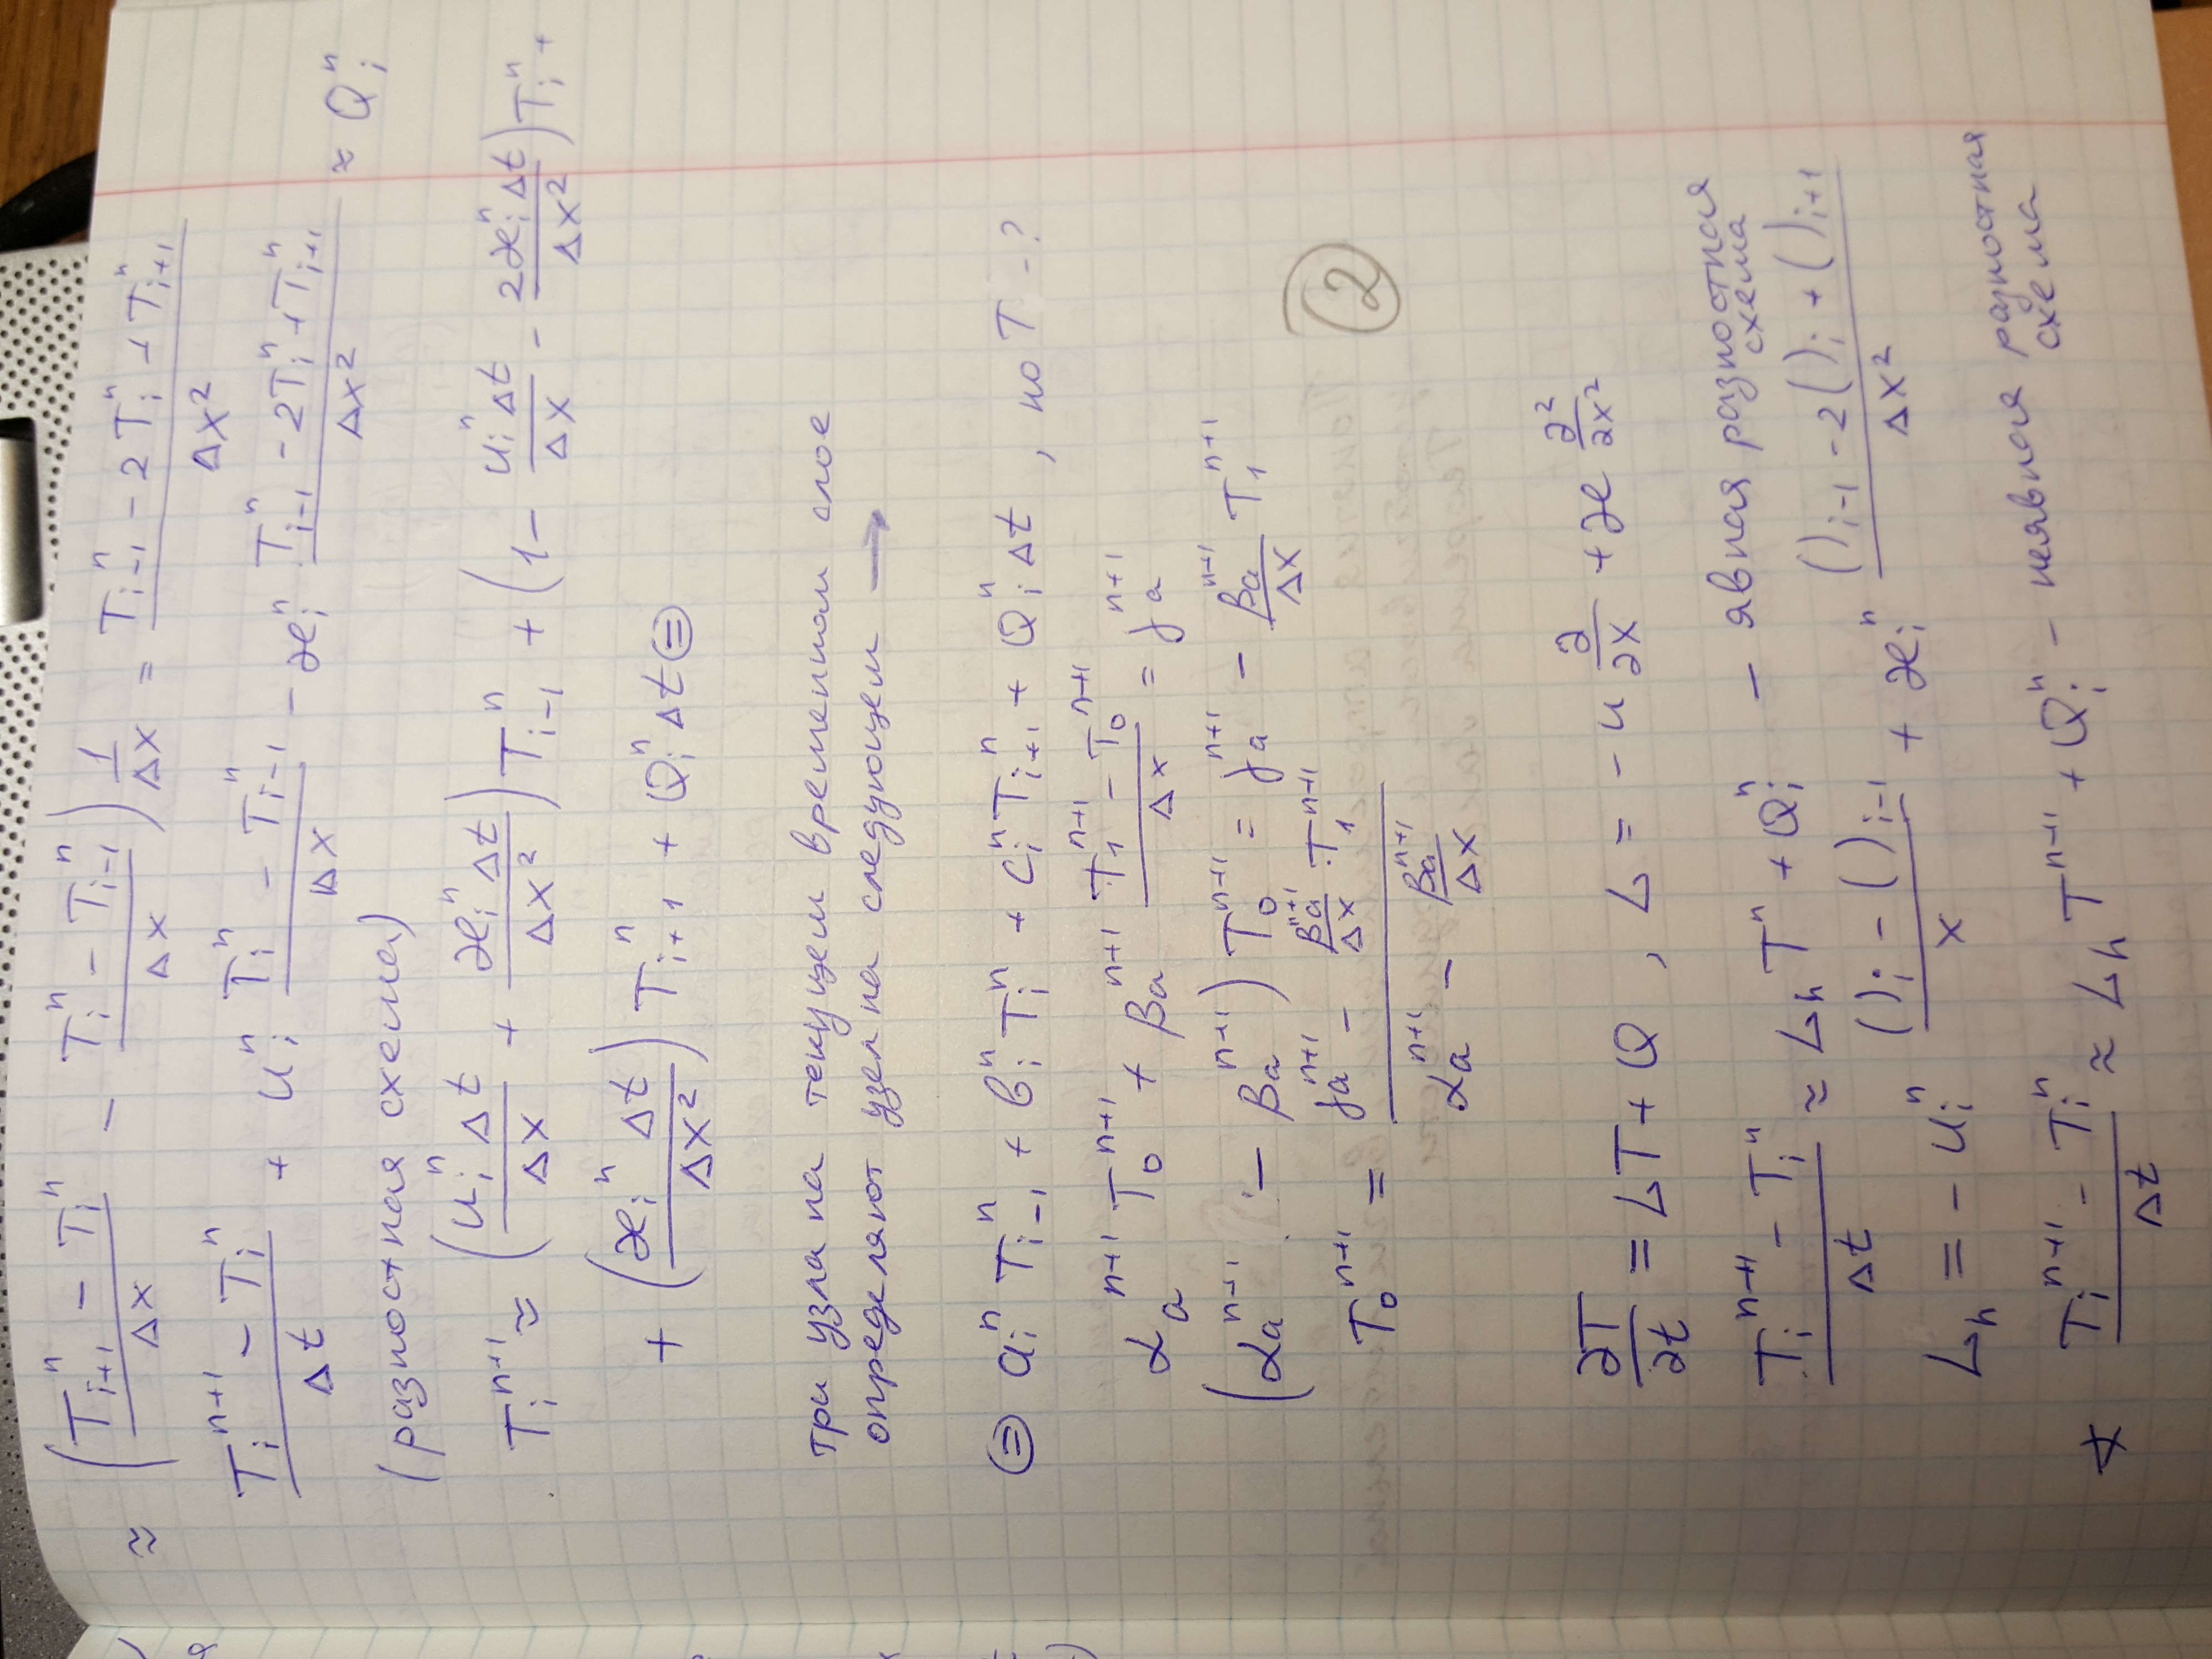 ≈ ( (T_{i+1}^n - T_i^n)/Δx - (T_i^n - T_{i-1}^n)/Δx ) 1/Δx = (T_{i-1}^n - 2T_i^n + T_{i+1}^n)/Δx²
(T_i^{n+1} - T_i^n)/Δt + u_i^n (T_i^n - T_{i-1}^n)/Δx - æ_i^n (T_{i-1}^n - 2T_i^n + T_{i+1}^n)/Δx² ≈ Q_i^n
(разностная схема)
T_i^{n+1} ≈ ( u_i^n Δt/Δx + æ_i^n Δt/Δx² ) T_{i-1}^n + ( 1 - u_i^n Δt/Δx - 2æ_i^n Δt/Δx² ) T_i^n +
+ ( æ_i^n Δt/Δx² ) T_{i+1}^n + Q_i^n Δt ⊜
три узла на текущем временном слое
определяют узел на следующем →
⊜ a_i^n T_{i-1}^n + b_i^n T_i^n + c_i^n T_{i+1}^n + Q_i^n Δt , но T - ?
α_a^{n+1} T_0^{n+1} + β_a^{n+1} (T_1^{n+1} - T_0^{n+1})/Δx = γ_a^{n+1}
(α_a^{n+1} - β_a^{n+1}) T_0^{n+1} = γ_a^{n+1} - β_a^{n+1}/Δx T_1^{n+1}
T_0^{n+1} = (γ_a^{n+1} - β_a^{n+1}/Δx · T_1^{n+1})/(α_a^{n+1} - β_a^{n+1}/Δx)
②
∂T/∂t = LT + Q , L = -u ∂/∂x + æ ∂²/∂x²
(T_i^{n+1} - T_i^n)/Δt ≈ L_h T^n + Q_i^n - явная разностная
схема
L_h = - u_i^n (()_i - ()_{i-1})/x + æ_i^n (()_{i-1} - 2()_i + ()_{i+1})/Δx²
∢ (T_i^{n+1} - T_i^n)/Δt ≈ L_h T^{n+1} + Q_i^n - неявная разностная
схема